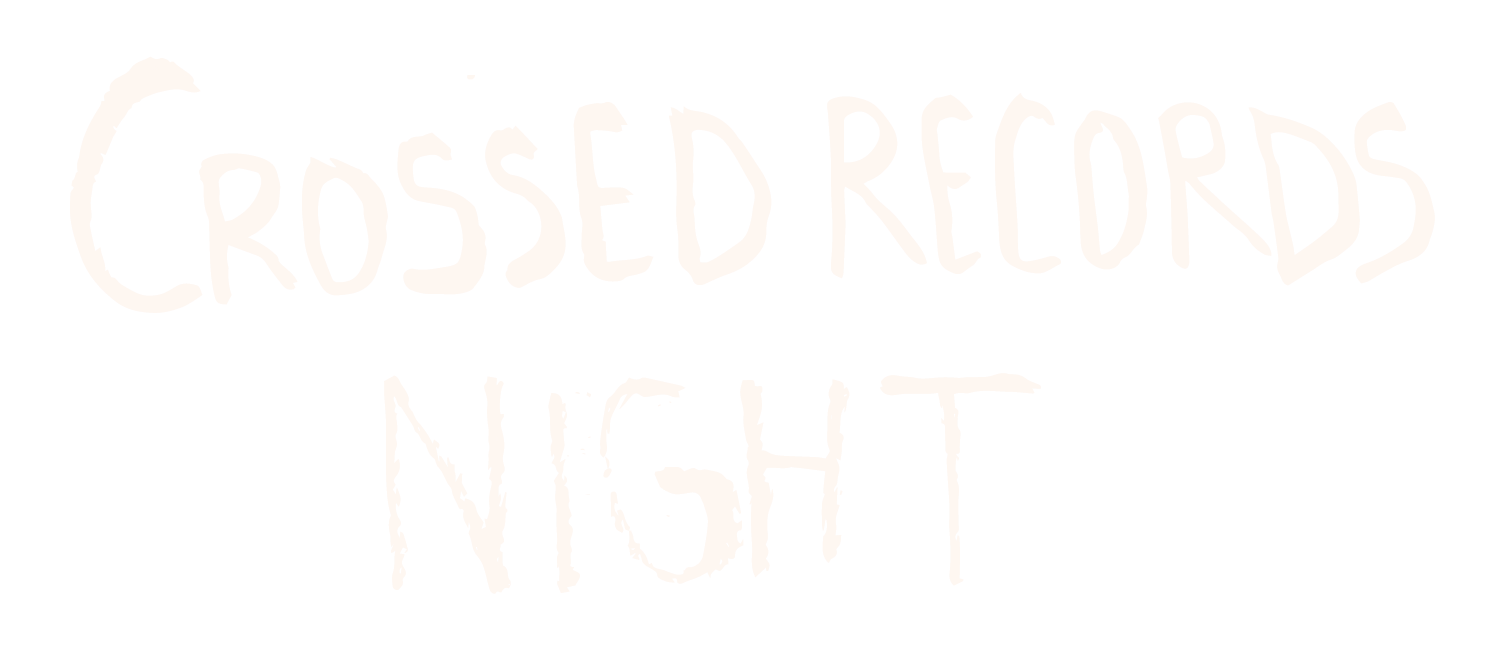 CROSSED RECORDS
NIGHT